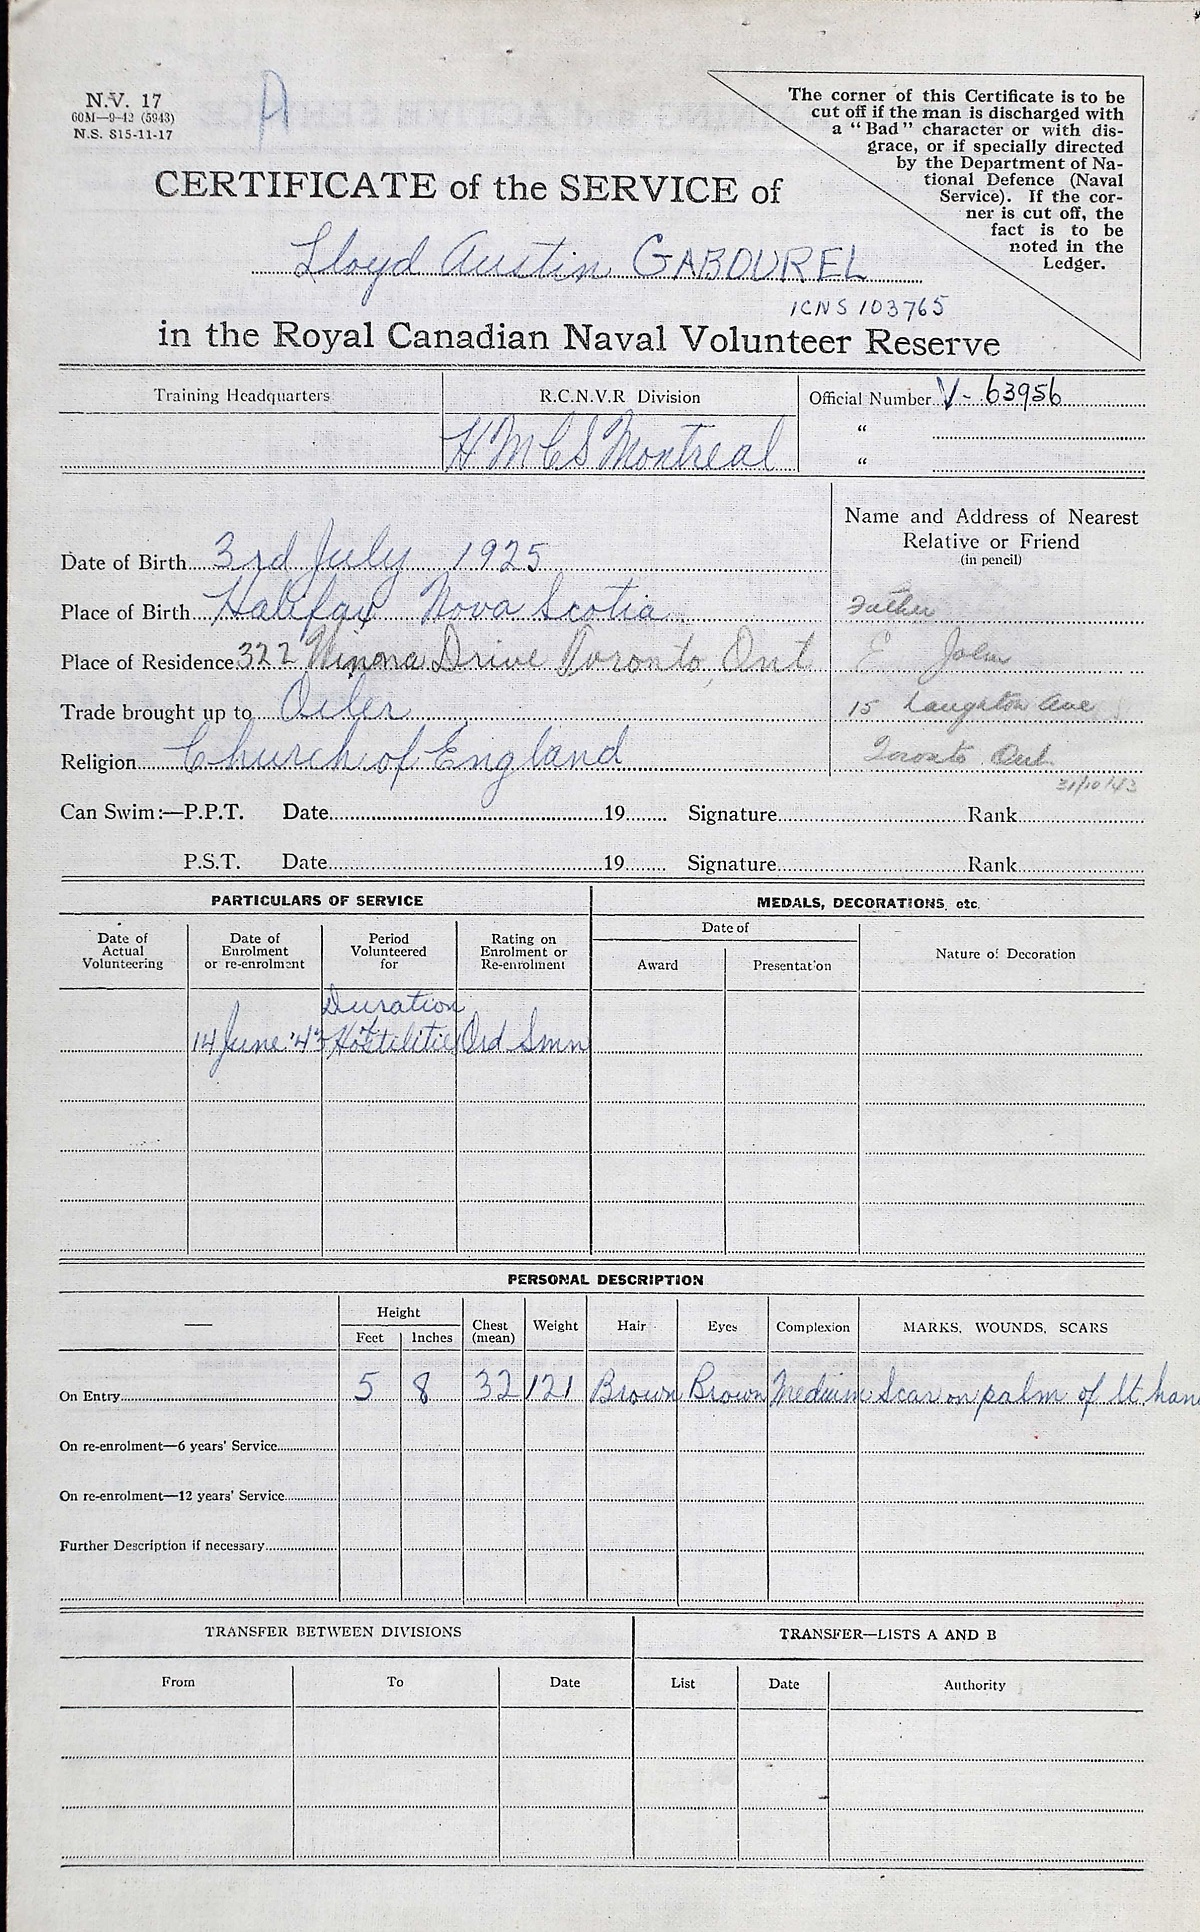 N.V. 17
60M—9-42 (5943)
N.S. 815-11-17
A
The corner of this Certificate is to be
cut off if the man is discharged with
a “Bad” character or with dis-
grace, or if specially directed
by the Department of Na-
tional Defence (Naval
Service). If the cor-
ner is cut off, the
fact is to be
noted in the
Ledger.
CERTIFICATE of the SERVICE of
Lloyd Austin GABOUREL
ICNS 103765
in the Royal Canadian Naval Volunteer Reserve
Training Headquarters R.C.N.V.R Division Official Number V-63956
HMCS Montreal “
“
Name and Address of Nearest
Relative or Friend
(in pencil)
Date of Birth 3rd July 1925
Place of Birth Halifax Nova Scotia Father
Place of Residence 322 Winona Drive Toronto, Ont E John
Trade brought up to Oiler 15 Laughton Ave
Religion Church of England Toronto Ont.
31/10/43
Can Swim:—P.P.T. Date 19 Signature Rank
P.S.T. Date 19 Signature Rank
PARTICULARS OF SERVICE MEDALS, DECORATIONS, etc.
Date of Actual Volunteering Date of Enrolment or re-enrolment Period Volunteered for Rating on Enrolment or Re-enrolment Date of Nature of Decoration
Award Presentation
Duration
14 June '43 Hostilities Ord Smn
PERSONAL DESCRIPTION
— Height Chest (mean) Weight Hair Eyes Complexion MARKS, WOUNDS, SCARS
Feet Inches
On Entry 5 8 32 121 Brown Brown Medium Scar on palm of lt. han
On re-enrolment—6 years' Service
On re-enrolment—12 years' Service
Further Description if necessary
TRANSFER BETWEEN DIVISIONS TRANSFER—LISTS A AND B
From To Date List Date Authority